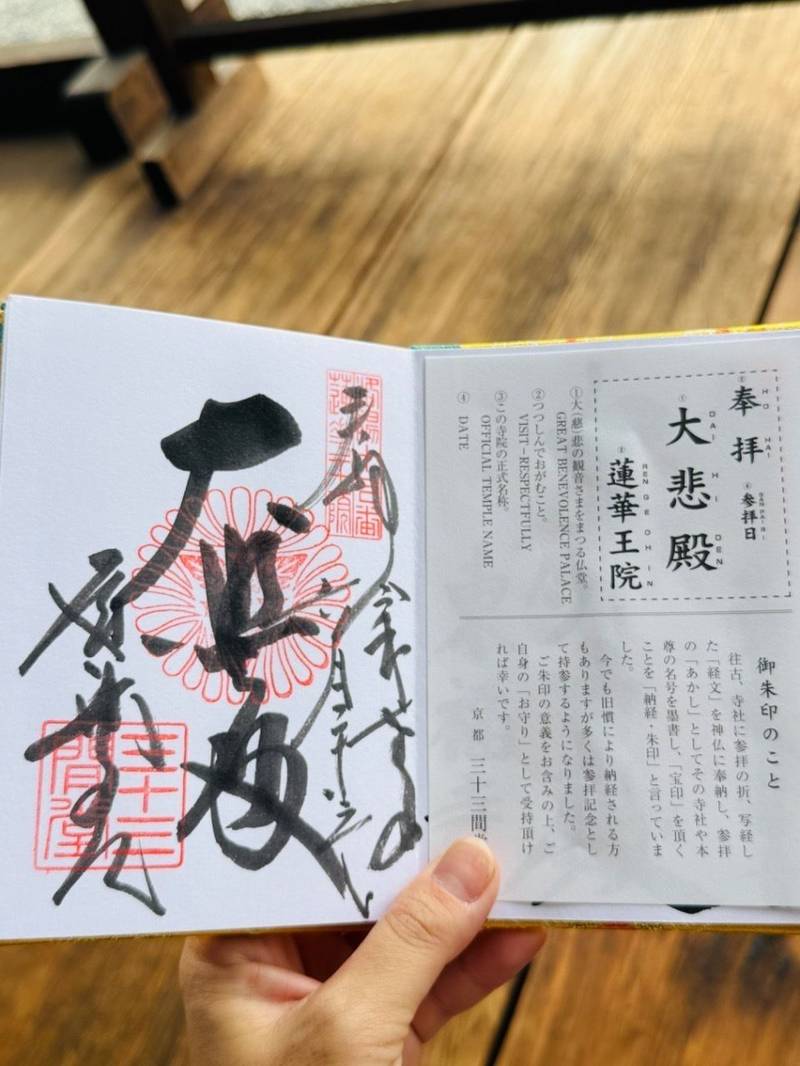 奉拝
HO HAI
参拝日
SAN PAI BI
① 大悲殿
DAI HI DEN
蓮華王院
REN GE OH IN
①大(慈)悲の観音さまをまつる仏堂。
GREAT BENEVOLENCE PALACE
②つつしんでおがむこと。
VISIT-RESPECTFULLY
③この寺院の正式名称。
OFFICIAL TEMPLE NAME
④ DATE
御朱印のこと
往古、寺社に参拝の折、写経し
た「経文」を神仏に奉納し、参拝
の「あかし」としてその寺社や本
尊の名号を墨書し、「宝印」を頂く
ことを「納経・朱印」と言っていま
した。
今でも旧慣により納経される方
もありますが多くは参拝記念とし
て持参するようになりました。
ご朱印の意義をお含みの上、ご
自身の「お守り」として受持頂け
れば幸いです。
京都 三十三間堂
奉拝
大悲殿
蓮華王院
三十三間堂